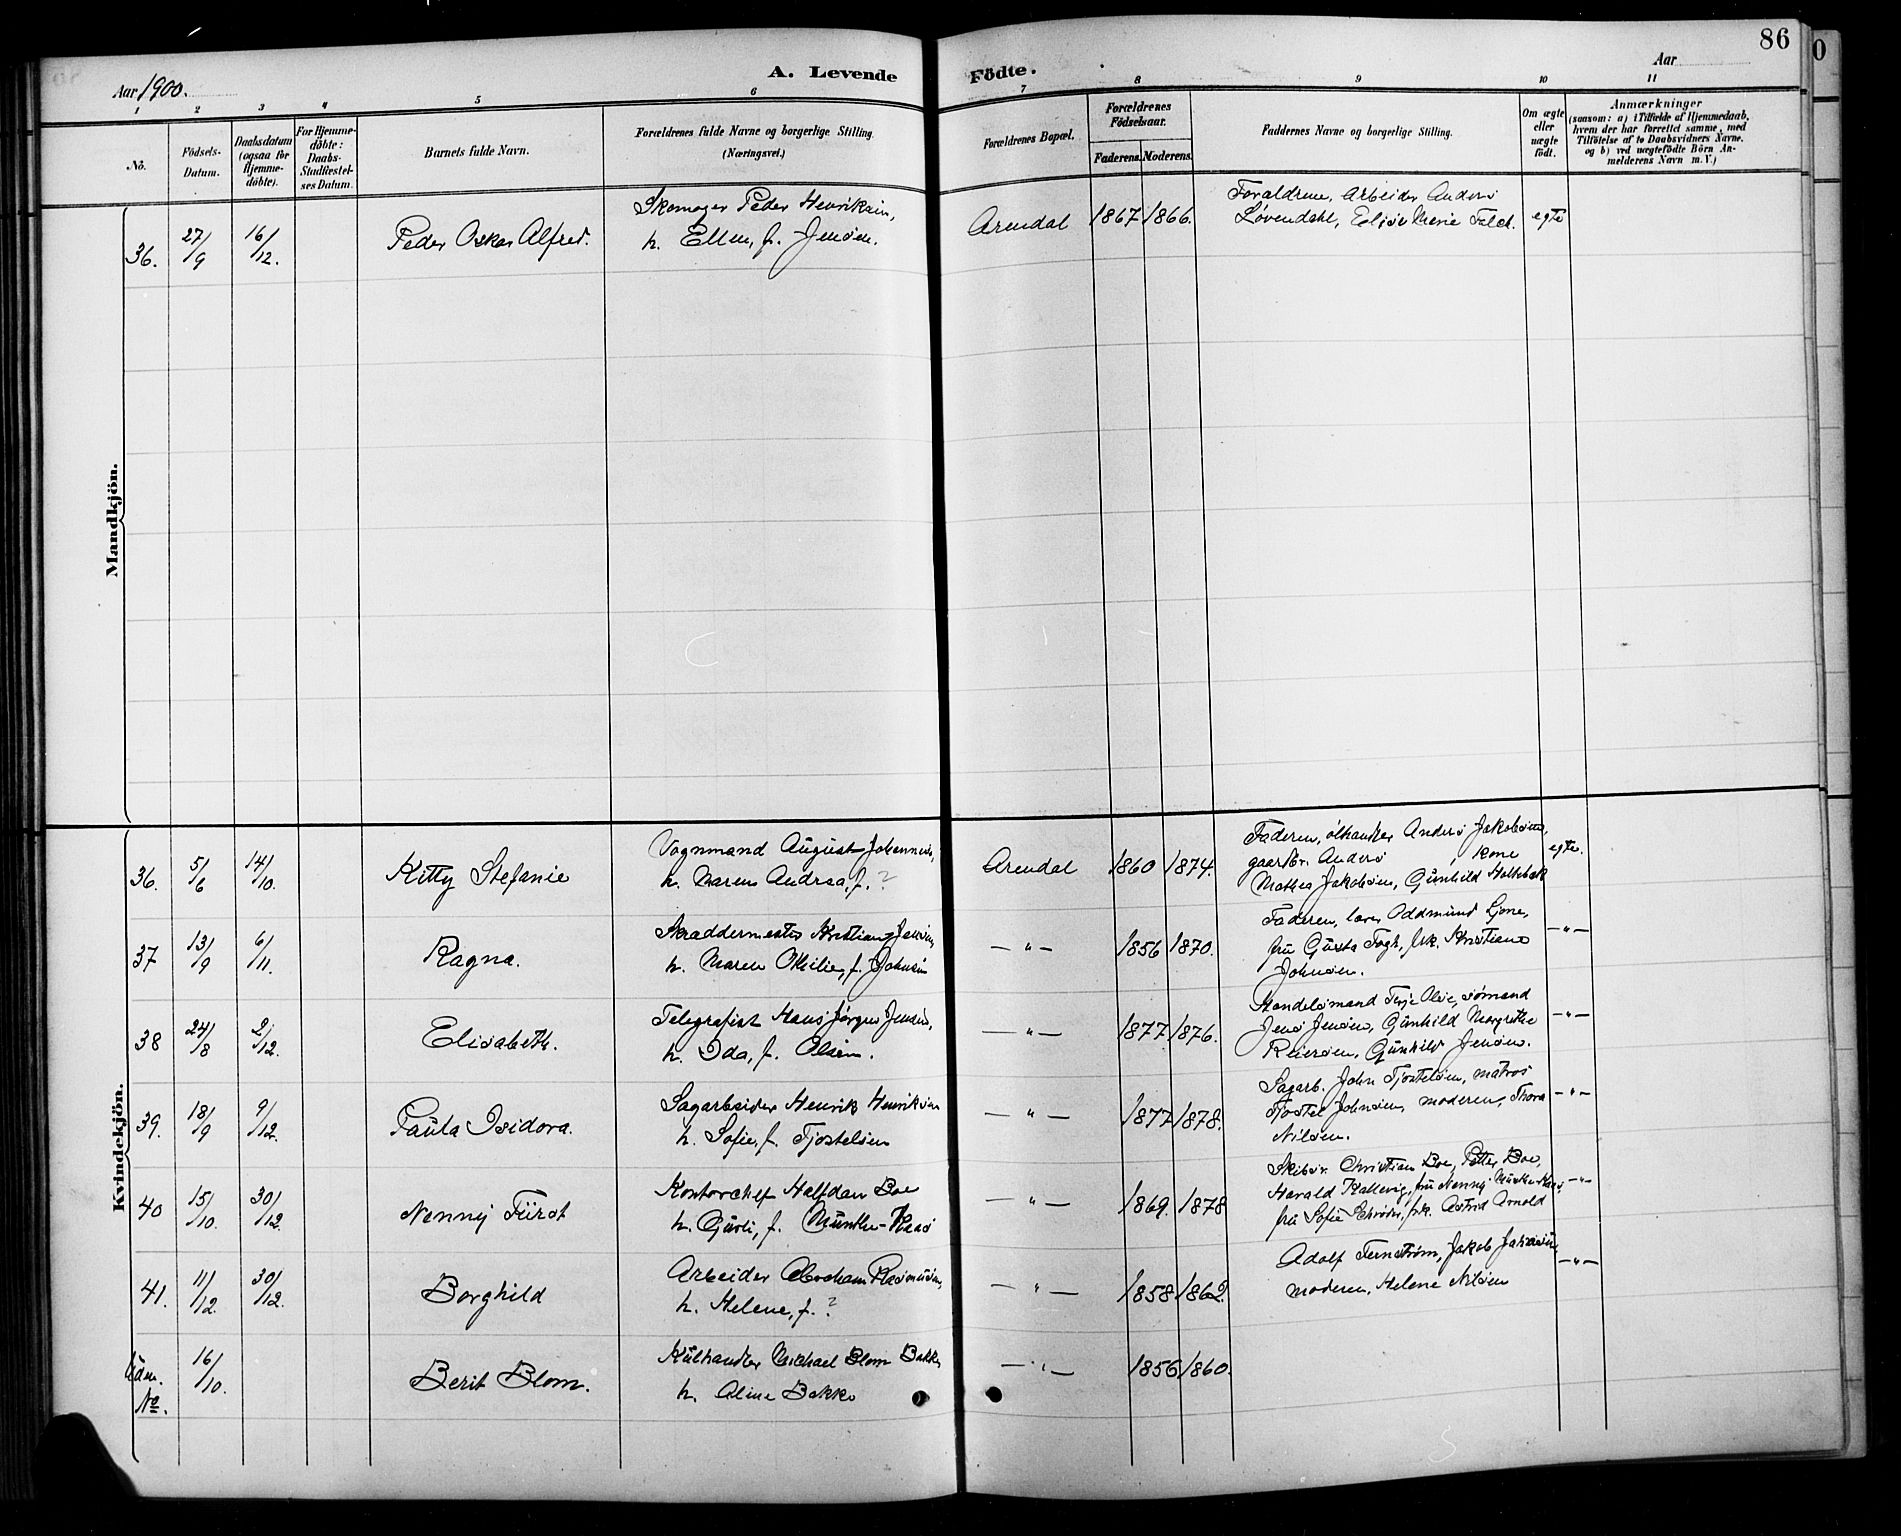 86
Aar 1900.
A. Levende Födte.
Aar
1 2 3 4 5 6 7 8 9 10 11
No.
Födsels-Datum.
Daabsdatum (ogsaa for Hjemme-döbte).
For Hjemme-döbte: Daabs-Stadfestel-ses Datum.
Barnets fulde Navn.
Forældrenes fulde Navne og borgerlige Stilling.
(Næringsvei.)
Forældrenes Bopæl.
Forældrenes Födselsaar.
Faderens. Moderens.
Faddernes Navne og borgerlige Stilling.
Om ægte eller uægte födt.
Anmærkninger
(saasom: a) i Tilfælde af Hjemmedaab,
hvem der har forrettet samme, med
Tilföielse af to Daabsvidners Navne.
og b) ved uægtefödte Börn An-
melderens Navn m. V.)
Mandkjön.
36. 27/9 16/12. Peder Oskar Alfred.
Skomager Peder Henriksen,
h. Ellen, f. Jensen.
Arendal 1867 1866.
Forældrene, Arbeider Anders
Løvendahl, Elise Marie Falch.
egte
Kvindekjön.
36. 5/6 14/10. Kitty Stefanie
Vognmand August Johannesen,
h. Maren Andrea, f. ?
Arendal 1860 1874.
Faderen, ølhandler Anders Jakobsen,
gaardbr. Anders kone
Mathea Jakobsen, Gunhild Holtebæk
egte.
37 13/9 6/11. Ragna.
Skræddermester Kristian Jensen,
h. Maren Othilie, f. Johnsen
—"— 1856 1870.
Faderen, lærer Oddmund Ljone,
fru Gusta Fogh, frk. Kristiane
Johnsen.
—"—
38 24/8 2/12. Elisabeth.
Telegrafist Hans Jørgen Jensen,
h. Ida, f. Olsen.
—"— 1877 1876.
Handelsmand Terje Olsen, sømand
Jens Jensen, Gunhild Margrethe
Reiersen, Gunhild Jensen.
—"—
39. 18/9 9/12. Paula Isidora.
Sagarbeider Henrik Henriksen
h. Sofie, f. Tjostelsen
—"— 1877 1878.
Sagarb. John Tjostelsen, matros
Tjostel Johnsen, moderen, Thora
Nilsen.
—"—
40 15/10. 30/12. Nenny Fürst
Kontorchef Halfdan Boe
h. Gusti, f. Munthe-Kaas
—"— 1869. 1878
Skibsr. Christian Boe, Petter Boe,
Harald Kallevig, fru Nenny Munthe Kaas,
fru Sofie Schrøder, frk. Astrid Arnold
—"—
41. 11/12. 30/12. Borghild
Arbeider Abraham Rasmussen,
h. Helene, f. ?
—"— 1858 1862.
Adolf Fernstrøm, Jakob
moderen, Helene Nilsen
—"—
Uden No. 16/10. Berit Blom.
Kulhandler Michael Blom Bakke,
h. Aline Bakke
—"— 1856 1860.